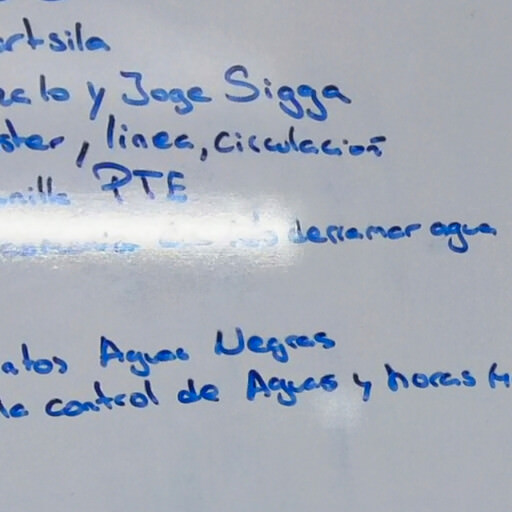 artsila
y Jorge Sigga
ster, linea, circulación
PTE
derramar agua
atos Aguas Negras
la control de Aguas y horas